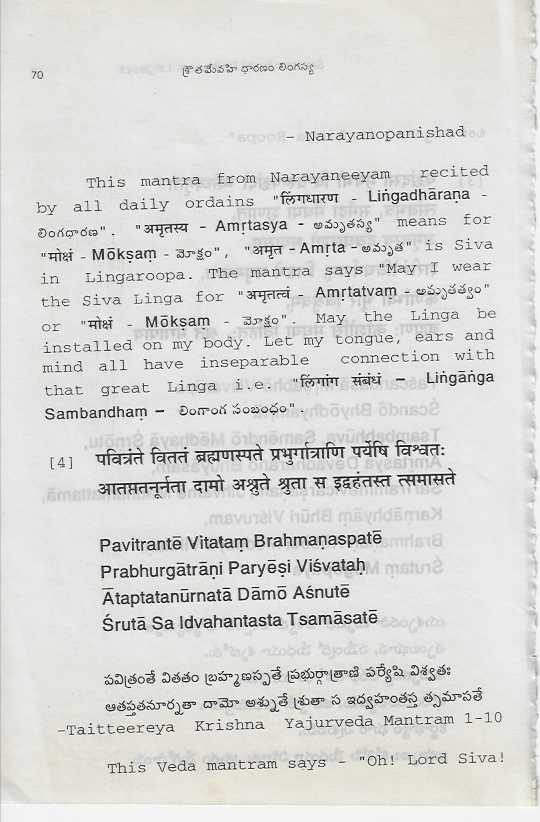 70
శ్రౌతమేవహి ధారణం లింగస్య
- Narayanopanishad
This mantra from Narayaneeyam recited
by all daily ordains "लिंगधारण - Liṅgadhāraṇa -
లింగధారణ". "अमृतस्य - Amṛtasya - అమృతస్య" means for
"मोक्षं - Mōkṣaṃ - మోక్షం", "अमृत - Amṛta - అమృత" is Siva
in Lingaroopa. The mantra says "May I wear
the Siva Linga for "अमृतत्वं - Amṛtatvaṃ - అమృతత్వం"
or "मोक्षं - Mōkṣaṃ - మోక్షం". May the Linga be
installed on my body. Let my tongue, ears and
mind all have inseparable connection with
that great Linga i.e. "लिंगांग संबंधं – Liṅgāṅga
Sambandhaṃ – లింగాంగ సంబంధం".
[4] पवित्रंते विततं ब्रह्मणस्पते प्रभुर्गात्राणि पर्येषि विश्वतः
आतप्ततनूर्नता दामो अश्नुते श्रुता स इद्वहंतस्त त्समासते
Pavitrantē Vitataṃ Brahmaṇaspatē
Prabhurgātrāṇi Paryēṣi Viśvataḥ
Ātaptatanūrnatā Dāmō Aśnutē
Śrutā Sa Idvahantasta Tsamāsatē
పవిత్రంతే వితతం బ్రహ్మణస్పతే ప్రభుర్గాత్రాణి పర్యేషి విశ్వతః
ఆతప్తతనూర్నతా దామో అశ్నుతే శ్రుతా స ఇద్వహంతస్త త్సమాసతే
-Taitteereya Krishna Yajurveda Mantram 1-10
This Veda mantram says - "Oh! Lord Siva!